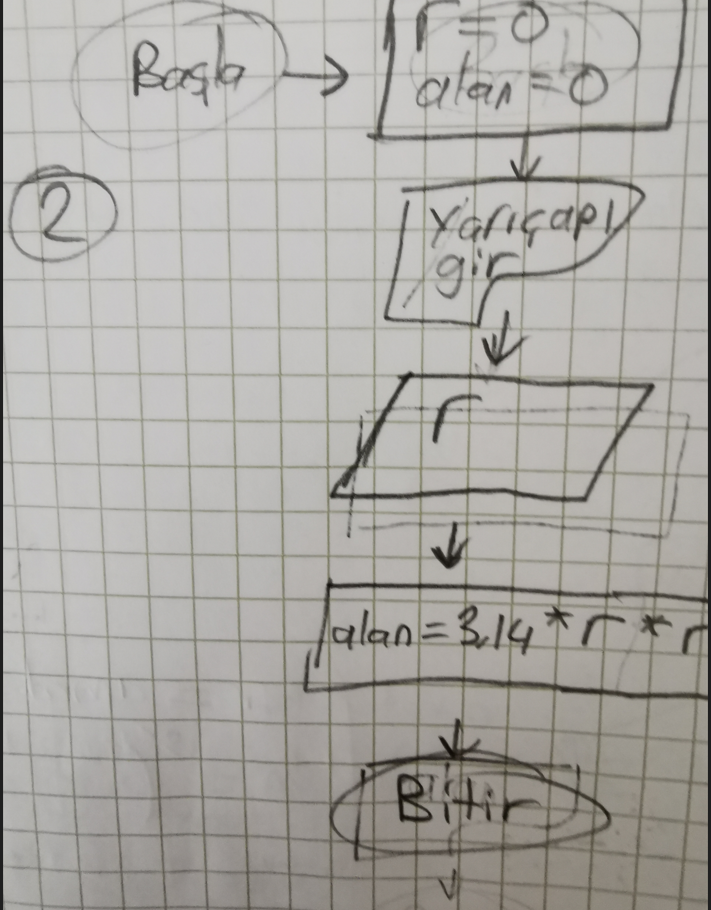 Başla
r = 0
alan = 0
2
Yarıçapı
gir
r
alan = 3.14 * r * r
Bitir